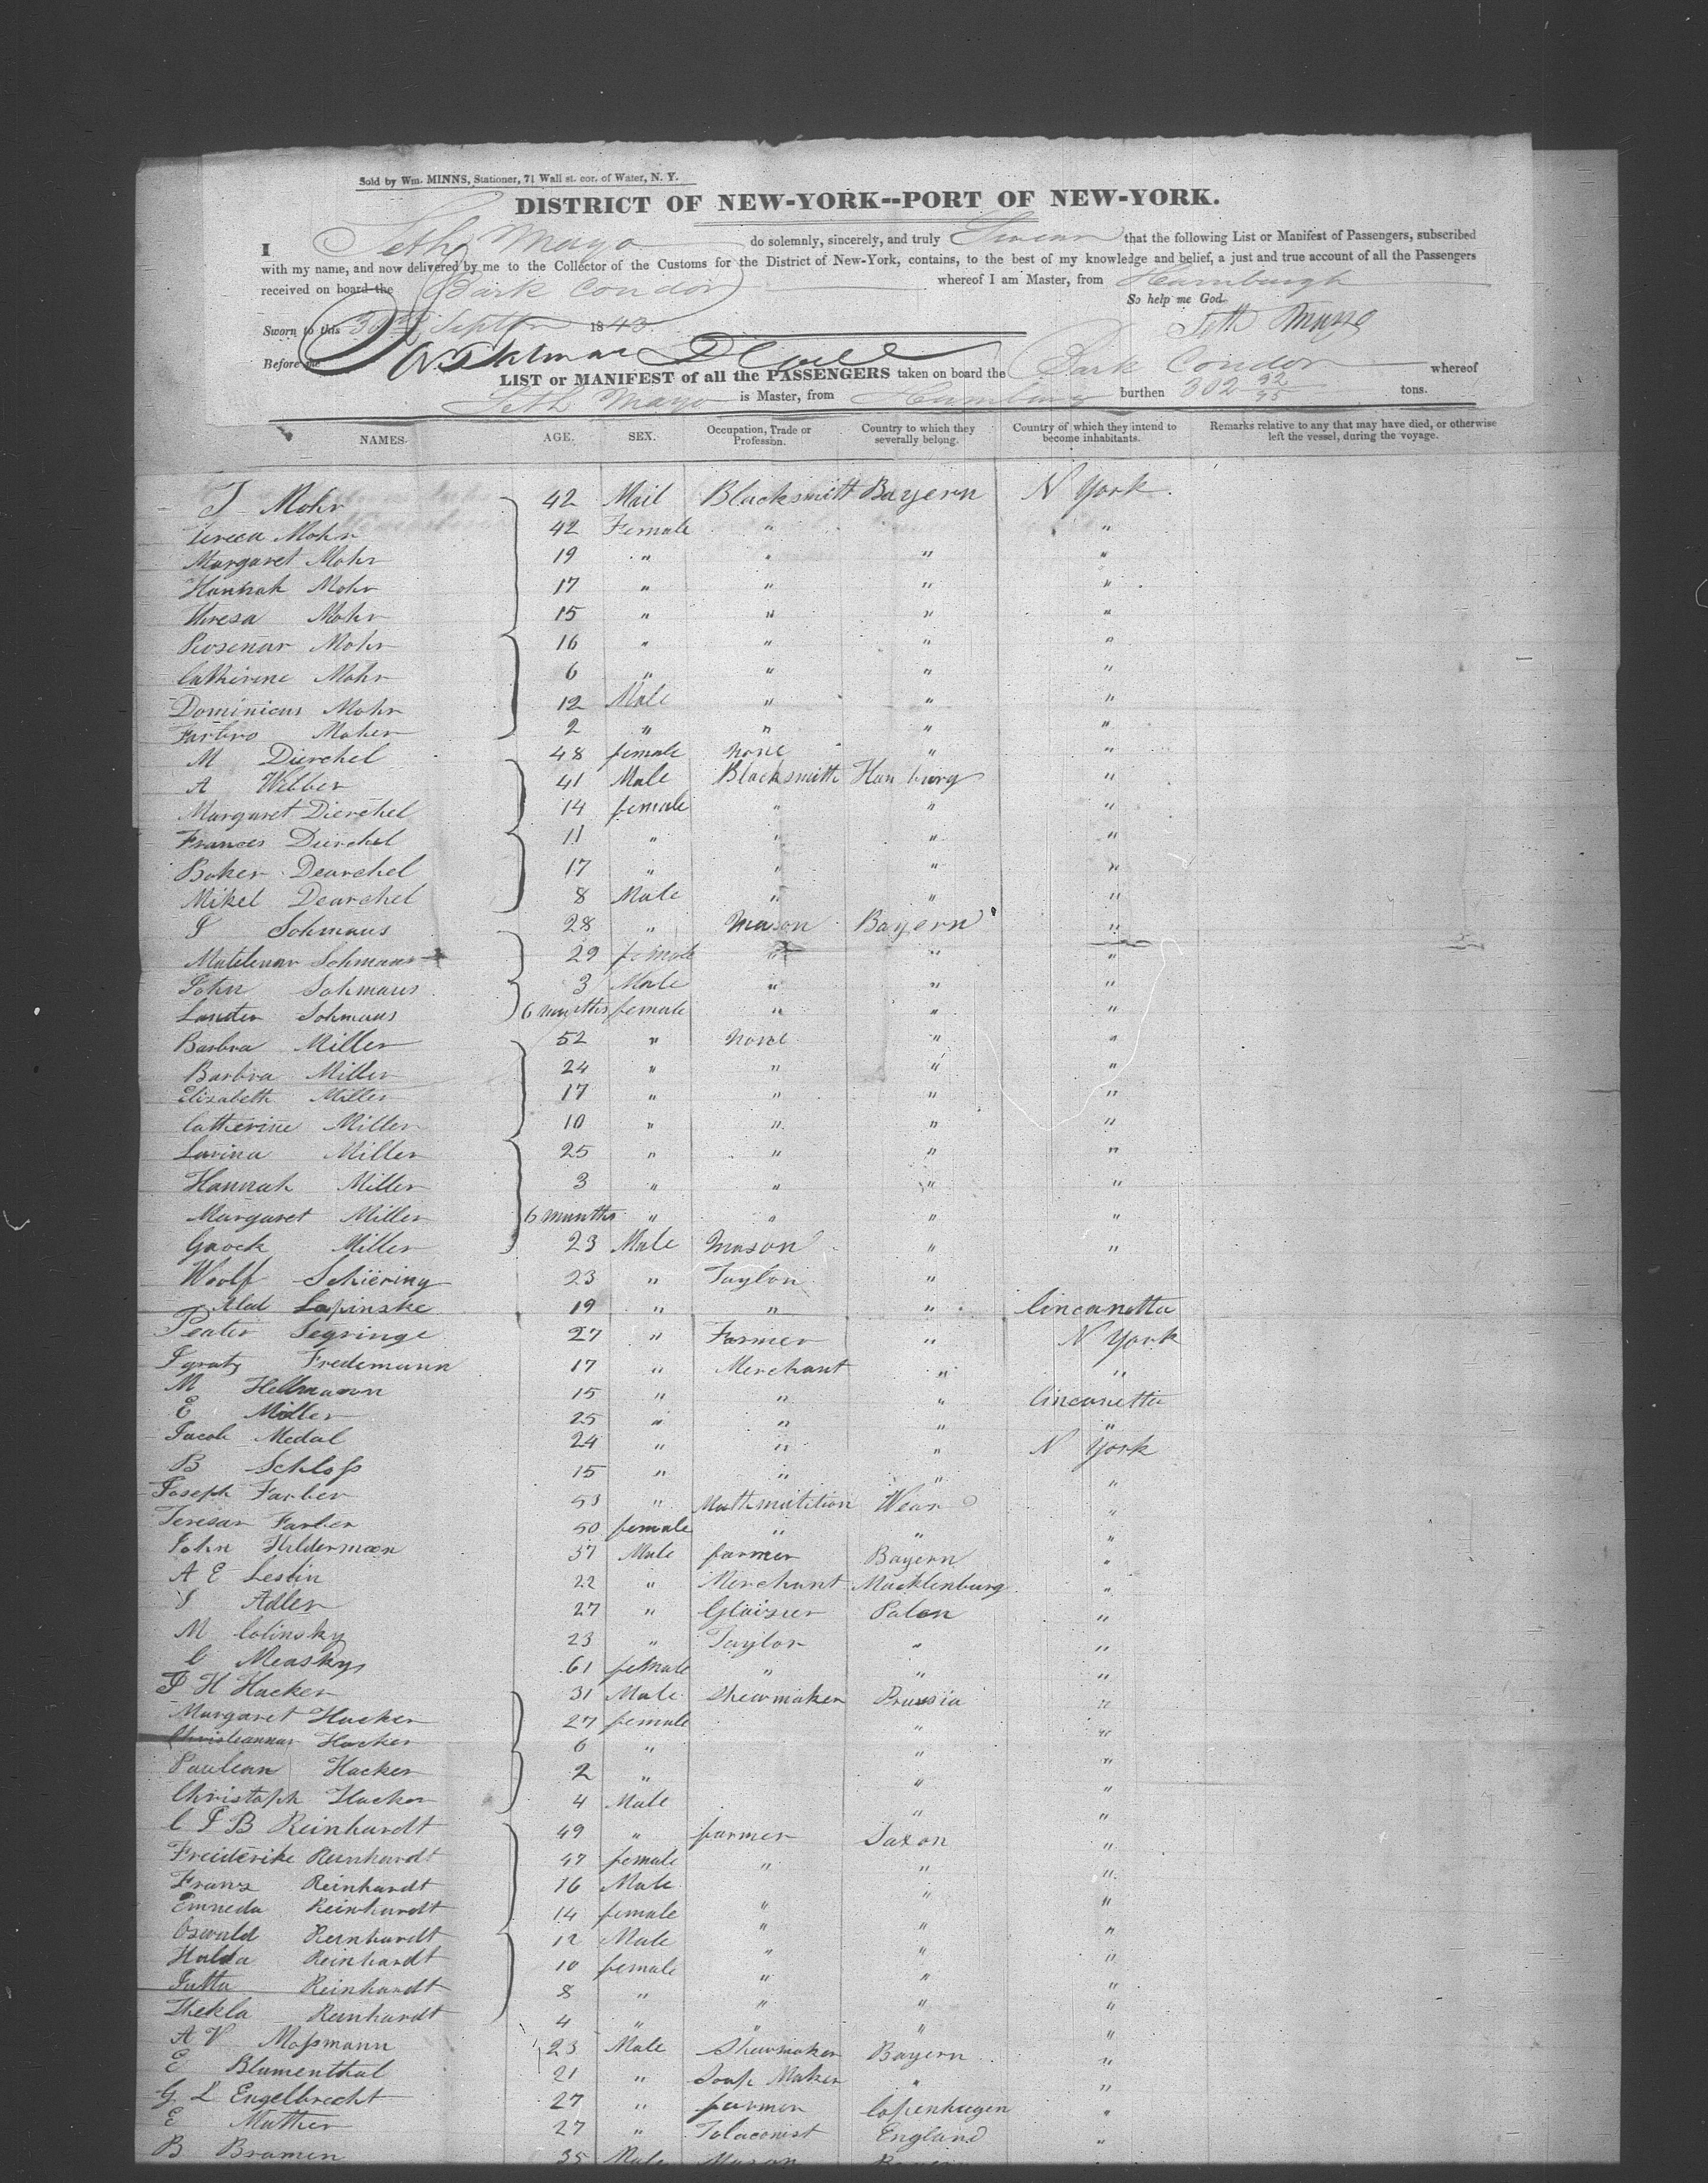 Sold by Wm. MINNS, Stationer, 71 Wall st. cor. of Water, N. Y.
DISTRICT OF NEW-YORK--PORT OF NEW-YORK.
I Seth Mayo do solemnly, sincerely, and truly Swear that the following List or Manifest of Passengers, subscribed
with my name, and now delivered by me to the Collector of the Customs for the District of New-York, contains, to the best of my knowledge and belief, a just and true account of all the Passengers
received on board the Bark Condor whereof I am Master, from Hamburgh
So help me God.
Sworn to this 30th Septbr 1843 Seth Mayo
Before me
LIST or MANIFEST of all the PASSENGERS taken on board the Bark Condor whereof
Seth Mayo is Master, from Hamburg burthen 302 32/95 tons.
NAMES. AGE. SEX. Occupation, Trade or Profession. Country to which they severally belong. Country of which they intend to become inhabitants. Remarks relative to any that may have died, or otherwise left the vessel, during the voyage.
J Mohr 42 Mail Blacksmitt Bayern N York
Vereca Mohr 42 Female " "
Margaret Mohr 19 " " " "
Hannah Mohr 17 " " " "
Theresa Mohr 15 " " " "
Rosenar Mohr 16 " " " "
Catherine Mohr 6 " " " "
Dominicus Mohr 12 Male " " "
Farbro Moher 2 " " " "
M Dierchel 48 female none " "
A Wilber 41 Male Blacksmith Hamburg "
Margaret Dierchel 14 female " " "
Frances Dierchel 11 " " " "
Baker Dearchel 17 " " " "
Mikel Dearchel 8 Male " " "
J Sohmaus 28 " Mason Bayern "
Matelenar Sohmaus 29 female " " "
John Sohmaus 3 Male " " "
Lander Sohmaus 6 months female " " "
Barbra Miller 52 " none " "
Barbra Miller 24 " " " "
Elizabeth Miller 17 " " " "
Catherine Miller 10 " " " "
Lavina Miller 25 " " " "
Hannah Miller 3 " " " "
Margaret Miller 6 munths " " " "
Gaock Miller 23 Male Mason " "
Woolf Schiering 23 " Taylor "
Alad Lapinske 19 " " " Cincanetta
Peater Segringe 27 " Farmer " N York
Ignatz Fredemann 17 " Merchant " "
M Hellmann 15 " " " Cincanetta
E Miller 25 " " " "
Jacob Medal 24 " " " N York
B Schloss 15 " " " "
Joseph Farber 53 " Mathmatition "
Teresar Farber 50 female " " "
John Hildermann 37 Male farmer Bayern "
A E Leslin 22 " Merchant Macklenburg "
J Adler 27 " Glaisier Polen "
M Colinsky 23 " Taylor " "
C Measky 61 female " " "
J H Hacker 31 Male Shewmaker Prussia "
Margaret Hacker 27 female " "
Christeannar Hacker 6 " " "
Paulean Hacker 2 " " "
Christoph Hacker 4 Male " "
C F B Reinhardt 49 " farmer Saxon "
Freiderike Reinhardt 47 female " " "
Franz Reinhardt 16 Male " "
Emneda Reinhardt 14 female " " "
Oswald Reinhardt 12 Male " " "
Hulda Reinhardt 10 female " " "
Jutta Reinhardt 8 " " " "
Thekla Reinhardt 4 " " " "
A V Mossmann 23 Male Shewmaker Bayern "
E Blumenthal 21 " Soap Maker " "
G L Engelbrecht 27 " farmer Copenhagen "
E Mather 27 " Tobaconist England "
B Bramen 35 Male Mason